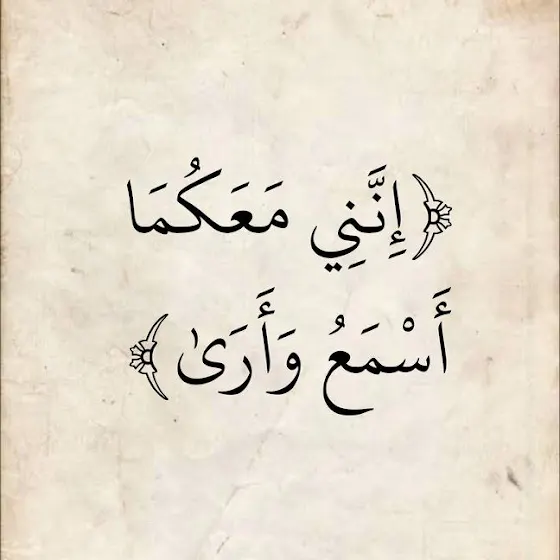 ﴿إِنَّنِي مَعَكُمَا
أَسْمَعُ وَأَرَىٰ﴾